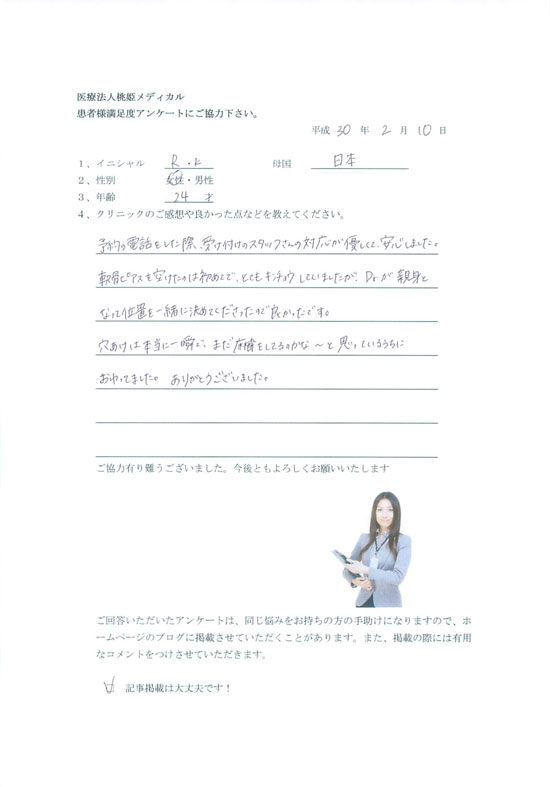 医療法人桃姫メディカル
患者様満足度アンケートにご協力下さい。
平成 30 年 2 月 10 日
1、イニシャル R.k 母国 日本
2、性別 女性・男性
3、年齢 24 才
4、クリニックのご感想や良かった点などを教えてください。
予約の電話をした際、受け付けのスタッフさんの対応が優しくて、安心しました。
軟骨ピアスを空けたのは初めてで、とてもキンチョウしていましたが、Drが親身と
なって位置を一緒に決めてくださったので良かったです。
穴あけは本当に一瞬で、まだ麻酔をしてるのかな〜と思っているうちに
おわってました。ありがとうございました。
ご協力有り難うございました。今後ともよろしくお願いいたします
ご回答いただいたアンケートは、同じ悩みをお持ちの方の手助けになりますので、ホ
ームページのブログに掲載させていただくことがあります。また、掲載の際には有用
なコメントをつけさせていただきます。
記事掲載は大丈夫です！